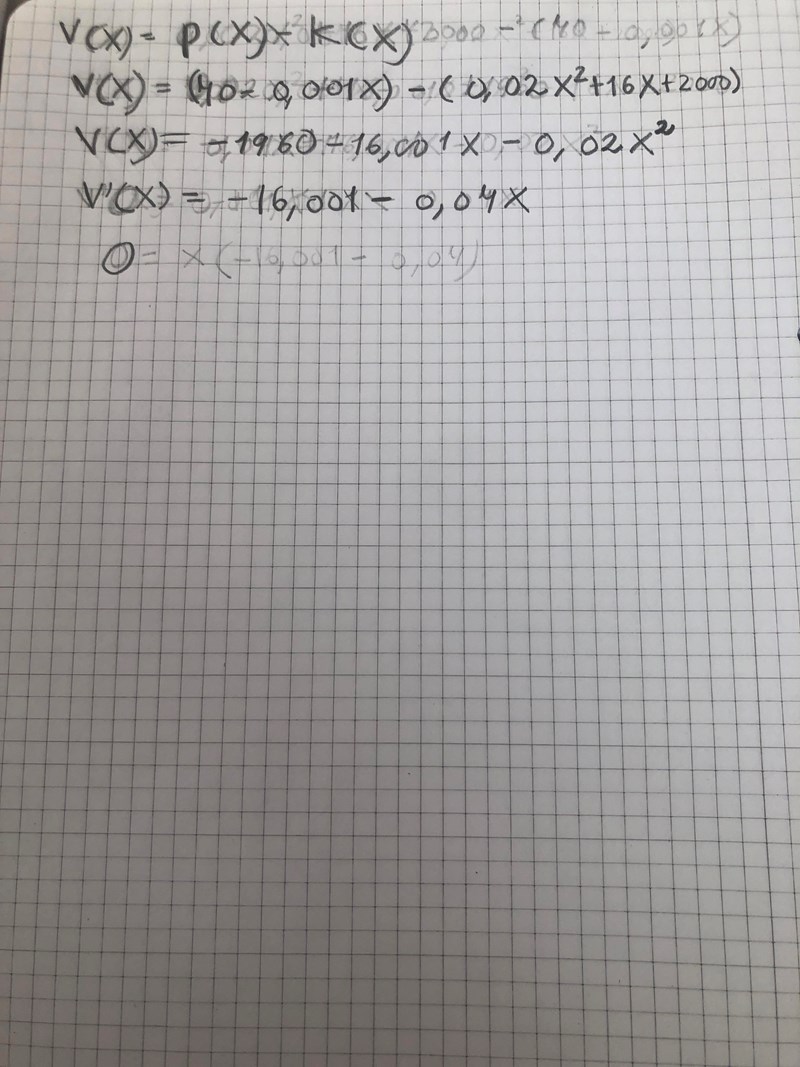 V(x) = P(x) - K(x)
V(x) = (40 - 0,001x) - (0,02x²+16x+2000)
V(x) = -1960 - 16,001x - 0,02x²
V'(x) = -16,001 - 0,04x
0 = x(-16,001 - 0,04)